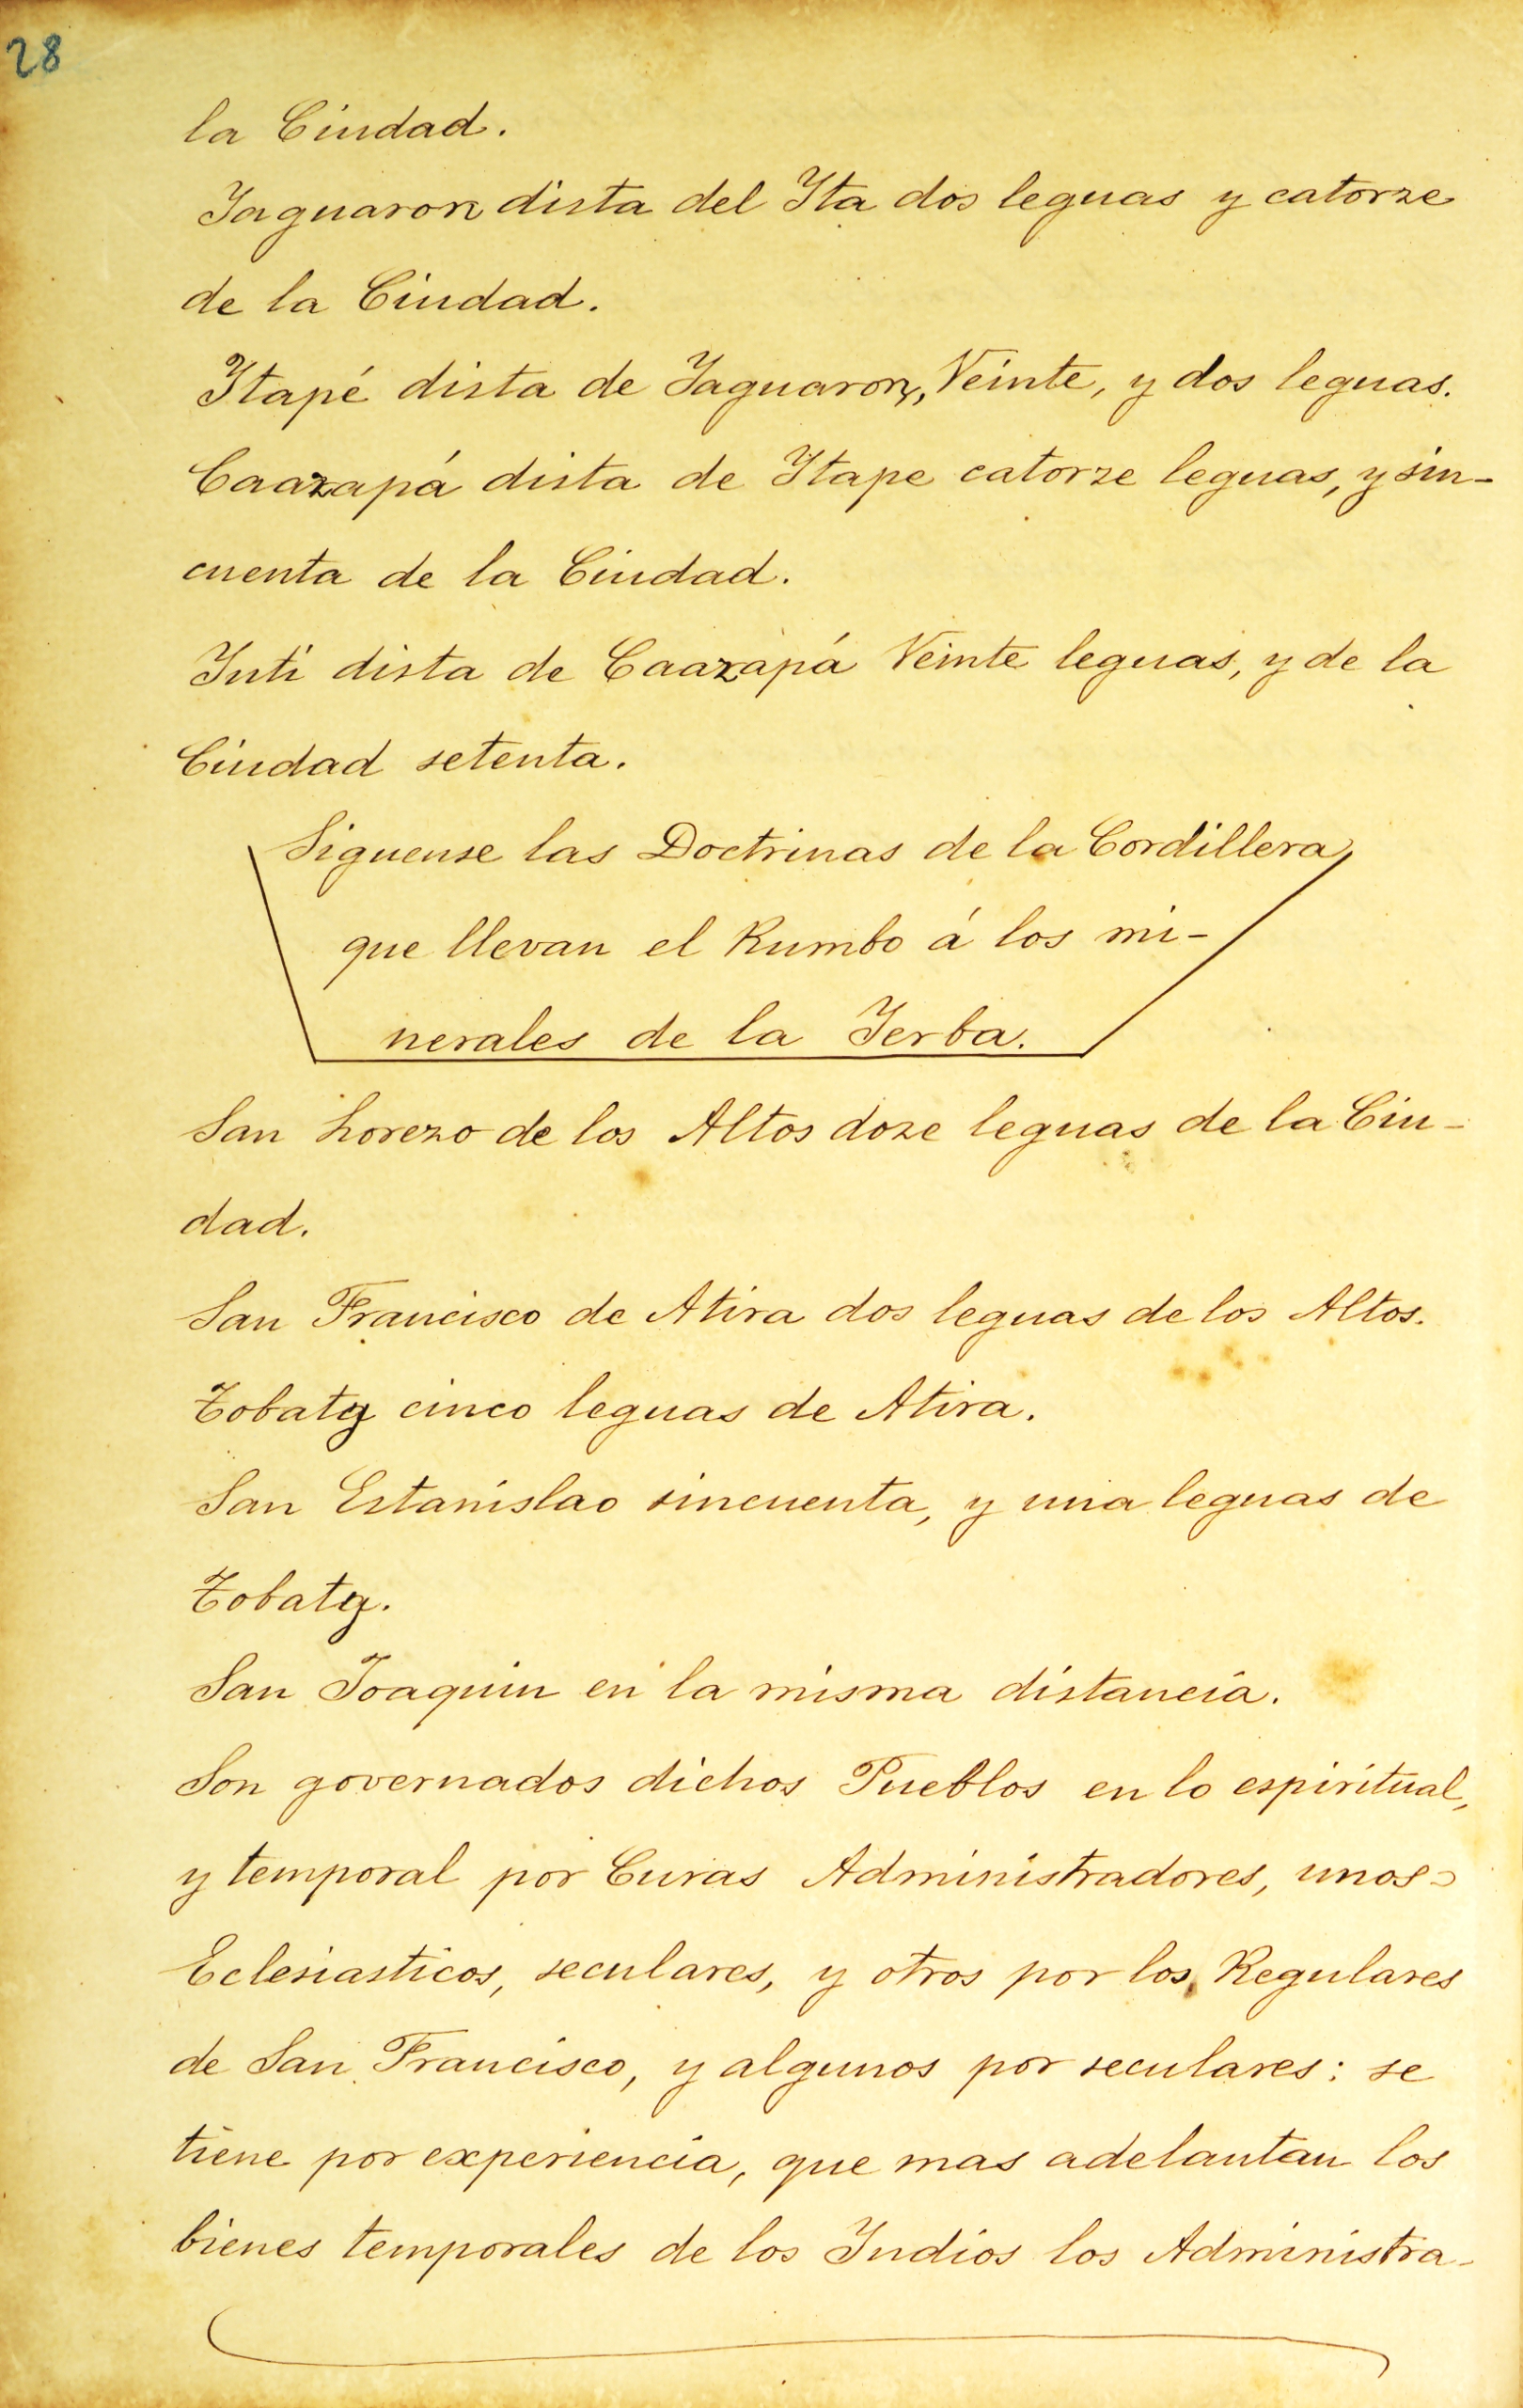 28
la Ciudad.
Yaguaron dista del Yta dos leguas y catorze
de la Ciudad.
Ytapé dista de Yaguaron, Veinte, y dos leguas.
Caazapá dista de Ytape catorze leguas, y sin-
cuenta de la Ciudad.
Yuti dista de Caazapá Veinte leguas, y de la
Ciudad setenta.
Siguense las Doctrinas de la Cordillera,
que llevan el Rumbo á los mi-
nerales de la Yerba.
San Lorezo de los Altos doze leguas de la Ciu-
dad.
San Francisco de Atira dos leguas de los Altos.
Tobaty cinco leguas de Atira.
San Estanislao sincuenta, y una leguas de
Tobaty.
San Joaquin en la misma distancia.
Son governados dichos Pueblos en lo espiritual,
y temporal por Curas Administradores, unos
Eclesiasticos, seculares, y otros por los Regulares
de San Francisco, y algunos por seculares: se
tiene por experiencia, que mas adelantan los
bienes temporales de los Yndios los Administra-